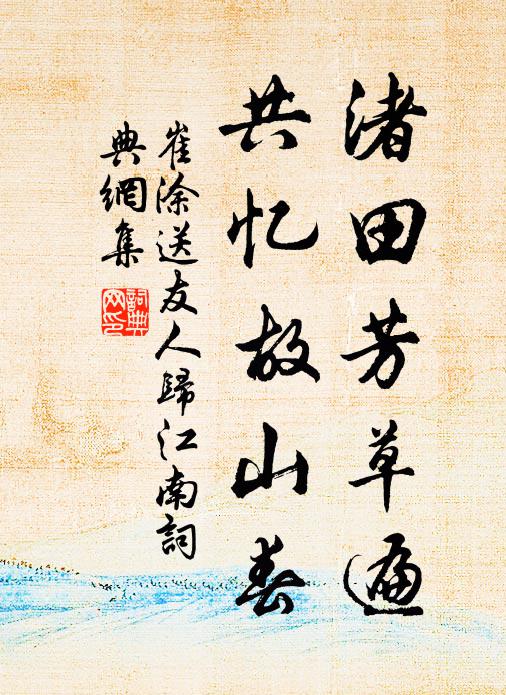 渚田芳草遍
共忆故山春
崔涂送友人歸江南詞
典網集
詞典網印